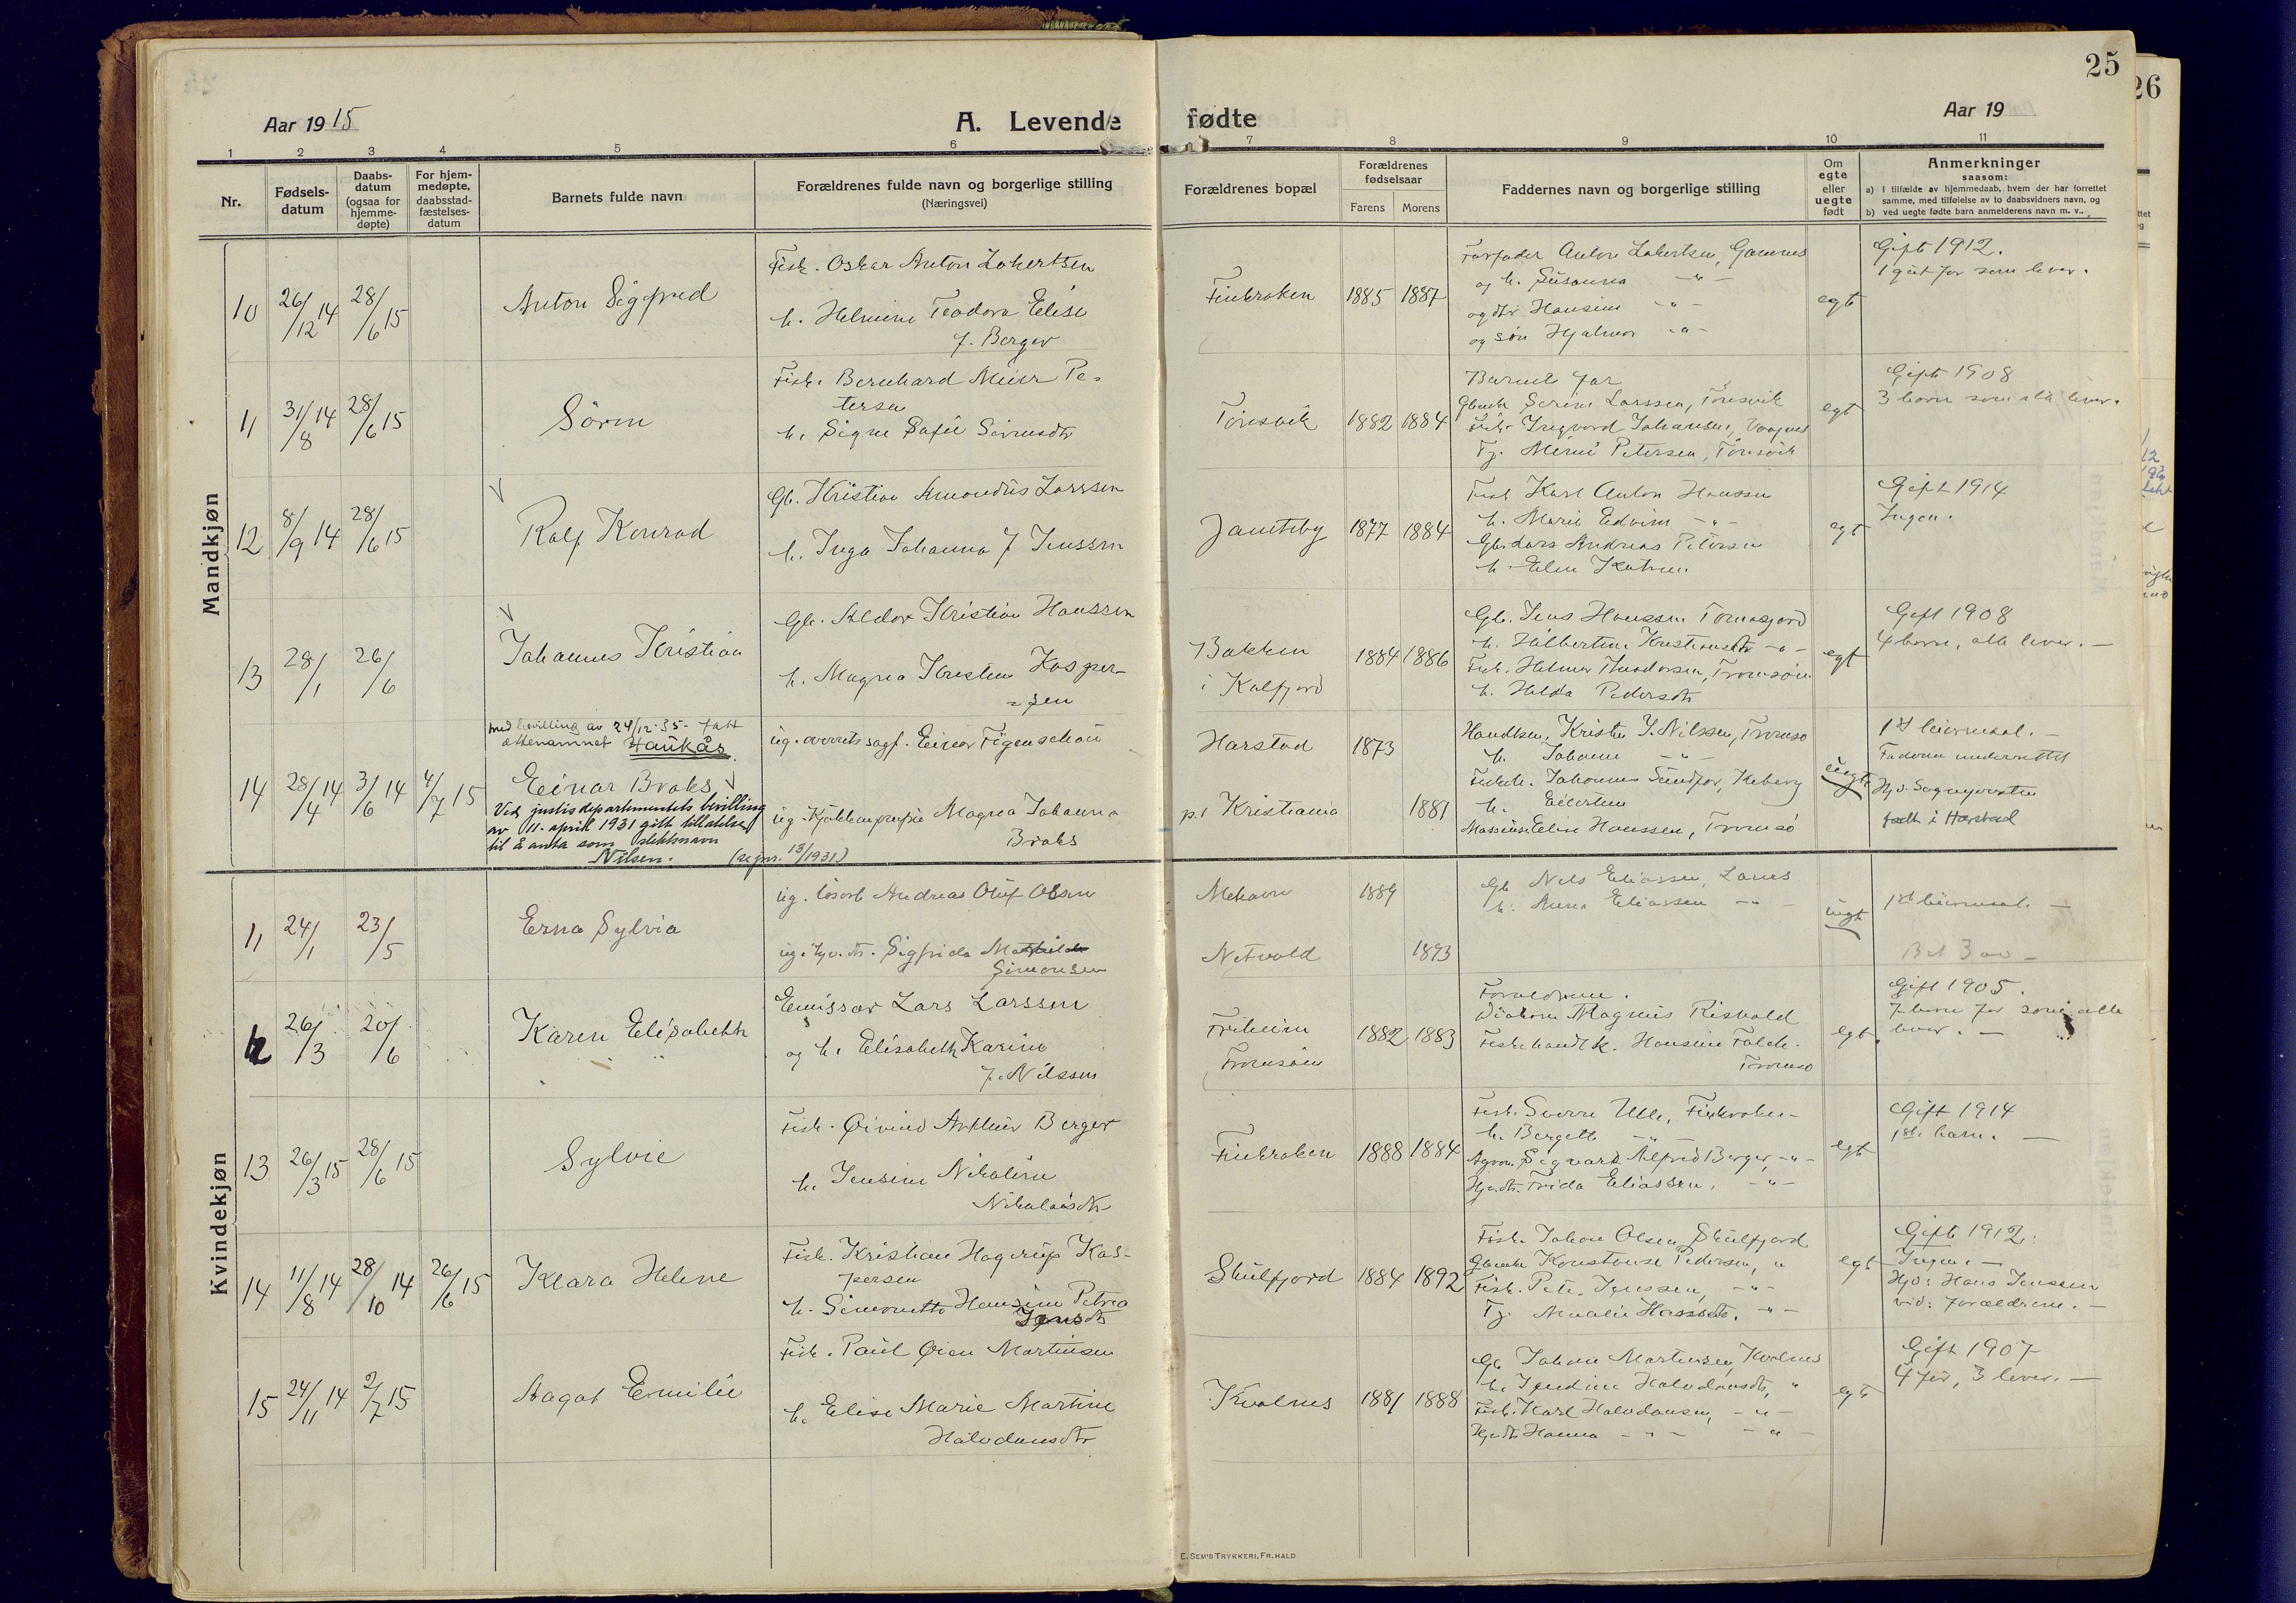 25
26
Aar 1915
A. Levende fødte
Aar 19
1 2 3 4 5 6 7 8 9 10 11
Nr.
Fødsels-
datum
Daabs-
datum
(ogsaa for
hjemme-
døpte)
For hjem-
medøpte,
daabsstad-
fæstelses-
datum
Barnets fulde navn
Forældrenes fulde navn og borgerlige stilling
(Næringsvei)
Forældrenes bopæl
Forældrenes
fødselsaar
Farens Morens
Faddernes navn og borgerlige stilling
Om
egte
eller
uegte
født
Anmerkninger
saasom:
a) i tilfælde av hjemmedaab, hvem der har forrettet
samme, med tilføielse av to daabsvidners navn, og
b) ved uegte fødte barn anmelderens navn m. v..
Mandkjøn
10 26/12 14 28/6 15
Anton Sigfred
Fisk. Oskar Anton Lokertsen
h. Helmine Teodora Elise
f. Berger
Finkroken 1885 1887
Farfader Anton Lokertsen, Gamnes
og h. Susanna -"-
og dtr Hansine "
og søn Hjalmar -"-
egt
Gift 1912.
1 gut før som lever.
11 31/8 14 28/6 15
Sørm
Fisk. Bernhard Meier Pe-
tersen
h. Signe Sofie Sørensdtr
Tønsvik 1882 1884
Barnets far
Serine Larssen, Tønsvik
Fisk. Ingvard Johansen, Vaagnes
Tj. Mimi Petersen, Tønsvik
egt
Gift 1908
3 barn som alle lever.
12 8/9 14 28/6 15
Ralf Konrad
Gb. Kristian Amandus Larssen
h. Inga Johanna f Jenssen
Jautsby 1877 1884
Fisk Karl Anton Hanssen
h. Marie Edvine -"-
Gb. Lars Andreas Petersen
h. Eline Katrine
egt
Gift 1914
Ingen.
13 28/1 26/6
Johannes Kristian
Gb. Aldor Kristian Hanssen
h. Magna Kristine Kasper-
sen
Bakken
i Kalfjord
1884 1886
Gb. Jens Hanssen
h. Hilbertine Kristiansdtr -"-
Fisk. Helmer Theodorsen, Tromsøen
h. Hilda Pedersdtr
egt
Gift 1908
4 barn, alle lever. —
med bevilling av 24/12-35 - tatt
ættenamnet Haukås.
14 28/4 14 3/6 14 4/7 15
Einar Broks
Ved justisdepartementets bevilling
av 11. april 1931 gitt tillatelse
til å anta som slektsnavn
Nilsen. (se jnr. 13/1931)
ug. overretssagf. Einar Figenschou
ug. Kjøkken Magna Johanna
Broks
Harstad 1873
p.t Kristiania 1881
Handlsm. Krister J. Nilssen, Tromsø
h. Johanne -"-
Johannes
h.
Elise Hanssen, Tromsø
uegte
1ste leiermaal. —
Faderen underrettet
Hjd. Sogneprestem
født i Harstad
Kvindekjøn
11 24/1 23/5
Erna Sylvia
ug. løsarb Andreas Oluf Olsen
ug. hjv. dtr. Sigfrida Mathilde
Simonsen
Mehavn 1889
Netvold 1893
Gb Nils Eliassen, Lanes
h. Anna Eliassen -"-
uegt
1ste leiermaal. —
Bet 3 oo —
12 26/3 20/6
Karen Elisabeth
Emissær Lars Larssen
og h. Elisabeth Karine
f. Nilssen
Friheim
Tromsøen
1882 1883
Forældrene.
Diakon Magnus Risvold
Fiskehandl k. Hansine Falch.
Tromsø
egt.
Gift 1905.
7 barn før som alle
lever. —
13 26/3 15 28/6 15
Sylvie
Fisk. Øivind Arthur Berger
h. Jensine Nikoline
Nikolaisdtr
Finkroken 1888 1884
Fisk. Sverre Ulle, Finkroken
h. Bergette -"-
Agron. Sigvart Alfred Berger, -"-
Hjv.dtr. Frida Eliassen, -"-
egt
Gift 1914
1ste barn. —
14 11/8 14 28/10 14 26/6 15
Klara Helene
Fisk. Kristian Hagerup Kas-
persen
h. Simonette Hansine Petrea
Jensdtr
Skulfjord 1884 1892
Fisk. Johan Olsen Skulfjord
Konstanse Pedersen, "
Fisk. Peter Jenssen, -"-
Tj. Maalie Hanssdtr. -"-
egt
Gift 1912.
Ingen. —
Hjd: Hans Jenssen
vid: forældrene. —
15 24/11 14 2/7 15
Aagot Emilie
Fisk. Paul Øien Martinsen
h. Elise Marie Martine
Halvdansdtr
Kvalnes 1881 1888
Gb Johan Martinsen, Kvalnes
h. Jendine Halvdansdtr, "
Fisk. Karl Halvdansen, -"-
Hjv dtr Hanna -"- -"-
egt
Gift 1907
4 før, 3 lever. —
E. SEM'S TRYKKERI, FR. HALD